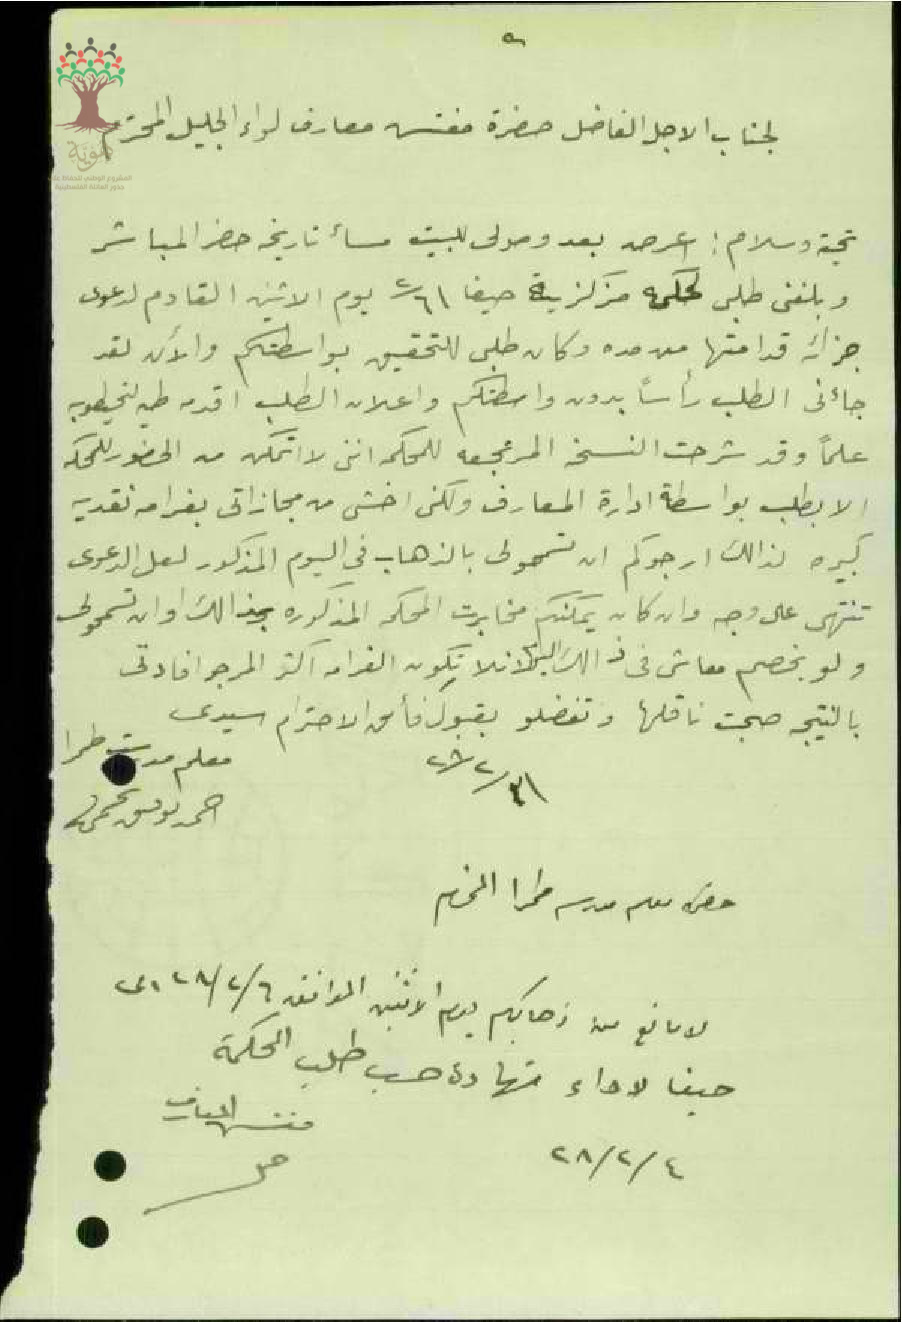 ٥
لجناب الاجل الفاضل حضرة مفتش معارف لواء الجليل المحترم
هوية
المشروع الوطني للحفاظ على
جذور العائلة الفلسطينية
تحية وسلام: اعرض بعد وصولى للبيت مساء تاريخه حضر المباشر
وبلغنى طلبى لمحكمة مركزية حيفا ٦/٢ يوم الاثنين القادم لدعوى
جزائه قد اقمتها من مده وكان طلبى للتحقيق بواسطتكم والآن لقد
جائنى الطلب رأساً بدون واسطتكم واعلان الطلب اقدمه طيه لتحيطو به
علماً وقد شرحت النسخه المرتجعه للمحكمه اننى لا اتمكن من الحضور للمحكمه
الا بطلب بواسطة ادارة المعارف ولكنى اخشى من مجازاتى بغرامه نقديه
كبيره لذالك ارجوكم ان تسمحولى بالذهاب فى اليوم المذكور لعل الدعوى
تنتهى على وجه وان كان يمكنكم مخابرت المحكمه المذكوره بذالك او ان تسمحولى
ولو بخصم معاش فى ذالك اليوم لانه لا تكون الغرامه اكثر المرجو افادتى
بالنتيجه صحبت ناقلها وتفضلو بقبول فائق الاحترام سيدى
معلم مدرسة طمرا
٢٨/٢/٣
احمد توفيق
حضرة معلم مدرسة طمرا المحترم
لا مانع من ذهابكم يوم الاثنين الموافق ٢٨/٢/٦ الى
حيفا لاداء شهادة حسب طلب المحكمة
مفتش المعارف
٢٨/٢/٤